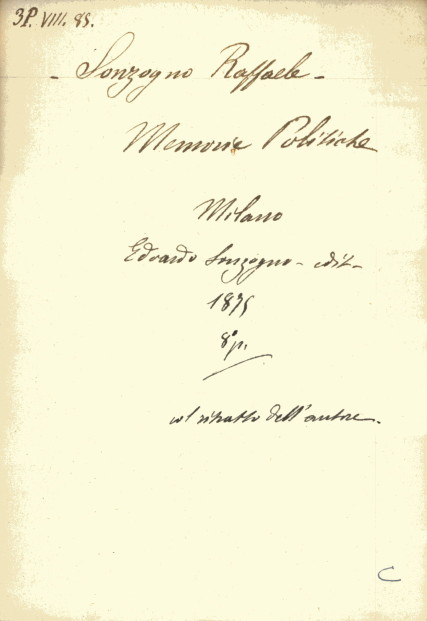 3P. VIII. 85.
- Sonzogno Raffaele -
Memorie Politiche
Milano
Edoardo Sonzogno - edit -
1875
8° p.
col ritratto dell'autore.
C